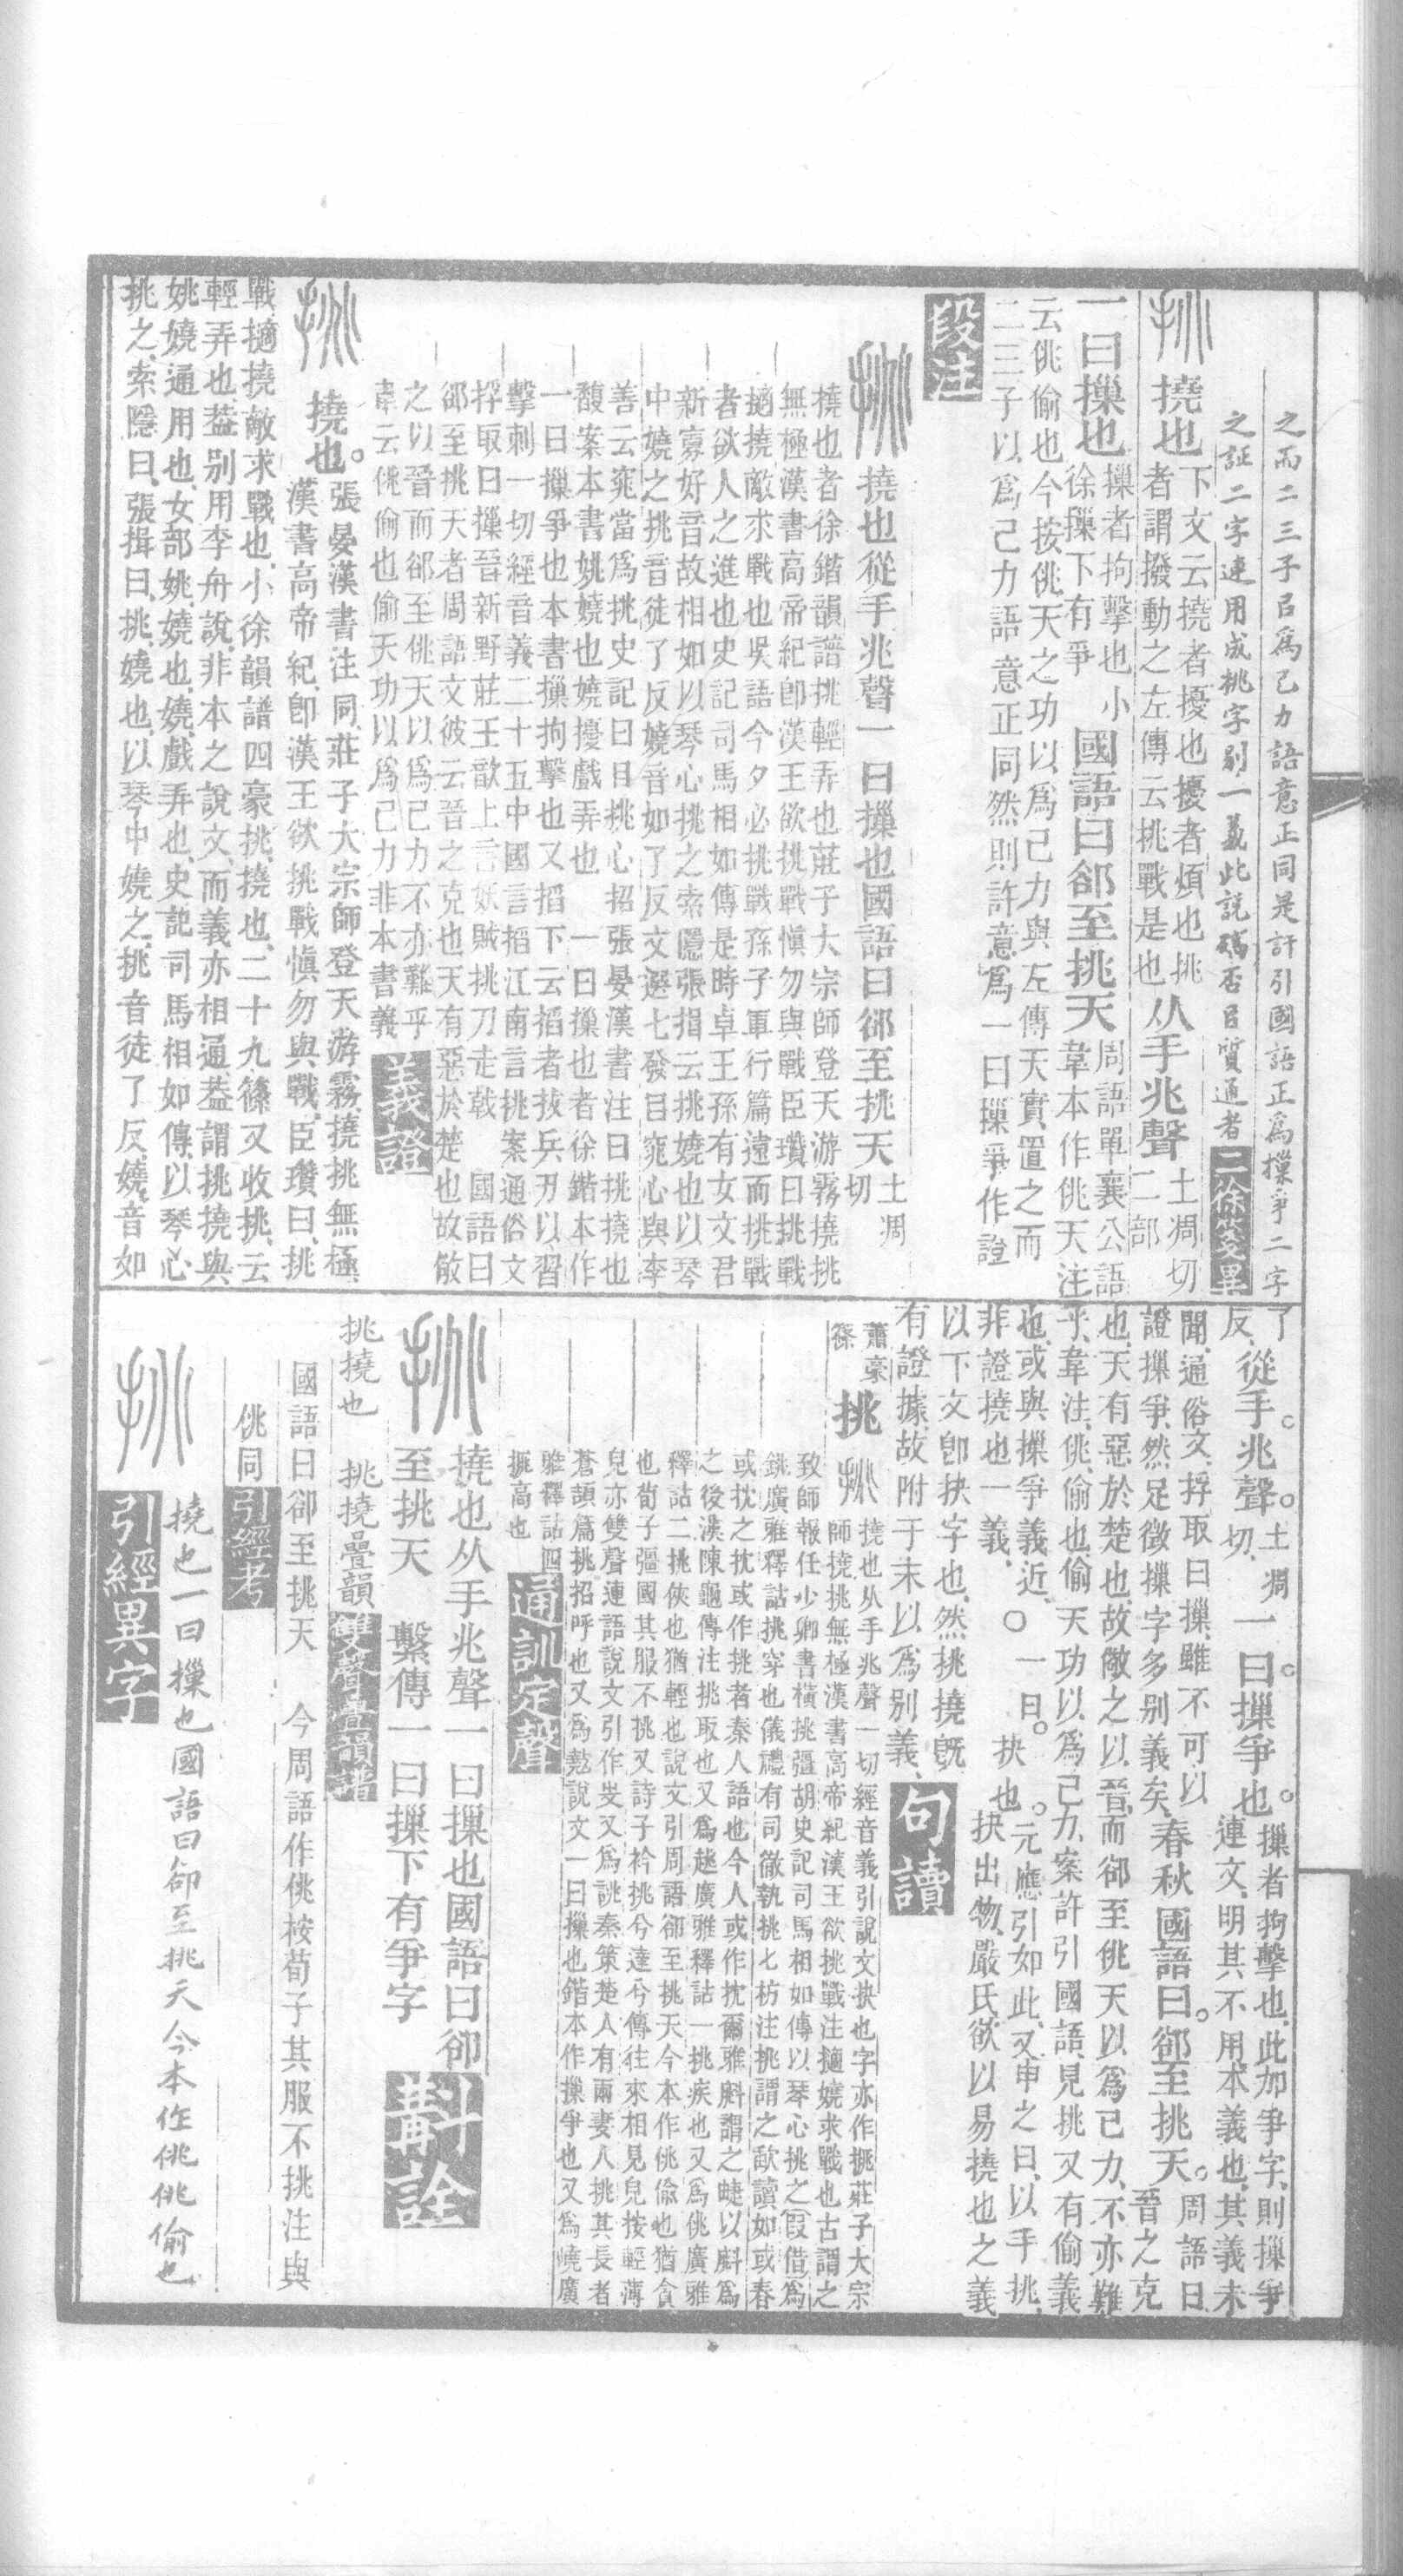 之而二三子㠯爲己力語意正同是許引國語正爲摷爭二字
之証二字連用成挑字别一義此説碻否㠯質通者
二徐箋異
撓也
下文云撓者擾也擾者煩也挑
者謂撥動之左傳云挑戰是也
从手兆聲
土凋切
二部
一曰摷也
摷者拘擊也小
徐摷下有爭
國語曰郤至挑天
周語單襄公語
韋本作佻天注
云佻偷也今按佻天之功以爲己力與左傳天實置之而
二三子以爲己力語意正同然則許意爲一曰摷爭作證
段注
撓也從手兆聲一曰摷也國語曰郤至挑天
土凋
切
撓也者徐鍇韻譜挑輕弄也莊子大宗師登天游霧撓挑
無極漢書高帝紀卽漢王欲挑戰愼勿與戰臣瓚曰挑戰
擿撓敵求戰也吳語今夕必挑戰孫子軍行篇遠而挑戰
者欲人之進也史記司馬相如傳是時卓王孫有女文君
新寡好音故相如以琴心挑之索隱張揖云挑嬈也以琴
中嬈之挑音徒了反嬈音如了反文選七發目窕心與李
善云窕當爲挑史記曰目挑心招張晏漢書注曰挑撓也
馥案本書姚嬈也嬈擾戲弄也一曰摷也者徐鍇本作
一曰摷爭也本書摷拘擊也又搯下云搯者拔兵刃以習
擊刺一切經音義二十五中國言搯江南言挑案通俗文
捊取曰摷晉新野莊王歆上言妖賊挑刀走戟 國語曰
郤至挑天者周語文彼云晉之克也天有惡於楚也故儆
之以晉而郤至佻天以爲己力不亦難乎
韋云佻偷也偷天功以爲己力非本書義
義證
撓也。
張晏漢書注同莊子大宗師登天游霧撓挑無極
漢書高帝紀卽漢王欲挑戰愼勿與戰臣瓚曰挑
戰擿撓敵求戰也小徐韻譜四豪挑撓也二十九篠又收挑云
輕弄也葢别用李舟說非本之說文而義亦相通葢謂挑撓與
姚嬈通用也女部姚嬈也嬈戲弄也史記司馬相如傳以琴心
挑之索隱曰張揖曰挑嬈也以琴中嬈之挑音徒了反嬈音如
了
反
從手。兆聲。
土凋
切
一曰。摷爭也。
摷者拘擊也此加爭字則摷爭
連文明其不用本義也其義未
聞通俗文捊取曰摷雖不可以
證摷爭然足徵摷字多别義矣
春秋國語曰。郤至挑天。
周語曰
晉之克
也天有惡於楚也故儆之以晉而郤至佻天以爲己力不亦難
乎韋注佻偷也偷天功以爲己力案許引國語見挑又有偷義
也或與摷爭義近〇
非證撓也一義
一曰。抉也。
元應引如此又申之曰以手挑
抉出物嚴氏欲以易撓也之義
以下文卽抉字也然挑撓旣
有證據故附于末以爲别義
句讀
蕭豪
篠
挑
撓也从手兆聲一切經音義引說文抉也字亦作㨱莊子大宗
師撓挑無極漢書高帝紀漢王欲挑戰注擿嬈求戰也古謂之
致師報任少卿書橫挑彊胡史記司馬相如傳以琴心挑之叚借爲
銚廣雅釋詁挑穿也儀禮有司徹執挑匕枋注挑謂之歃讀如或舂
或抌之抌或作挑者秦人語也今人或作抌爾雅㪶謂之䟫以㪶爲
之後漢陳龜傳注挑取也又爲趒廣雅釋詁一挑疾也又爲佻廣雅
釋詁二挑俠也猶輕也說文引周語郤至挑天今本作佻偸也猶貪
也荀子彊國其服不挑又詩子衿挑兮達兮傳往來相見皃按輕薄
皃亦雙聲連語說文引作叏又爲誂秦策楚人有兩妻人挑其長者
蒼頡篇挑招呼也又爲㪣說文一曰摷也鍇本作摷爭也又爲嬈廣
雅釋詁四
挑高也
通訓定聲
撓也从手兆聲一曰摷也國語曰郤
至挑天 繫傳一曰摷下有爭字
斠詮
挑撓也 挑撓疊韻
雙聲疊韻譜
國語曰郤至挑天 今周語作佻桉荀子其服不挑注與
佻同
引經考
撓也一曰摷也國語曰卻至挑天今本作佻佻偷也
引經異字